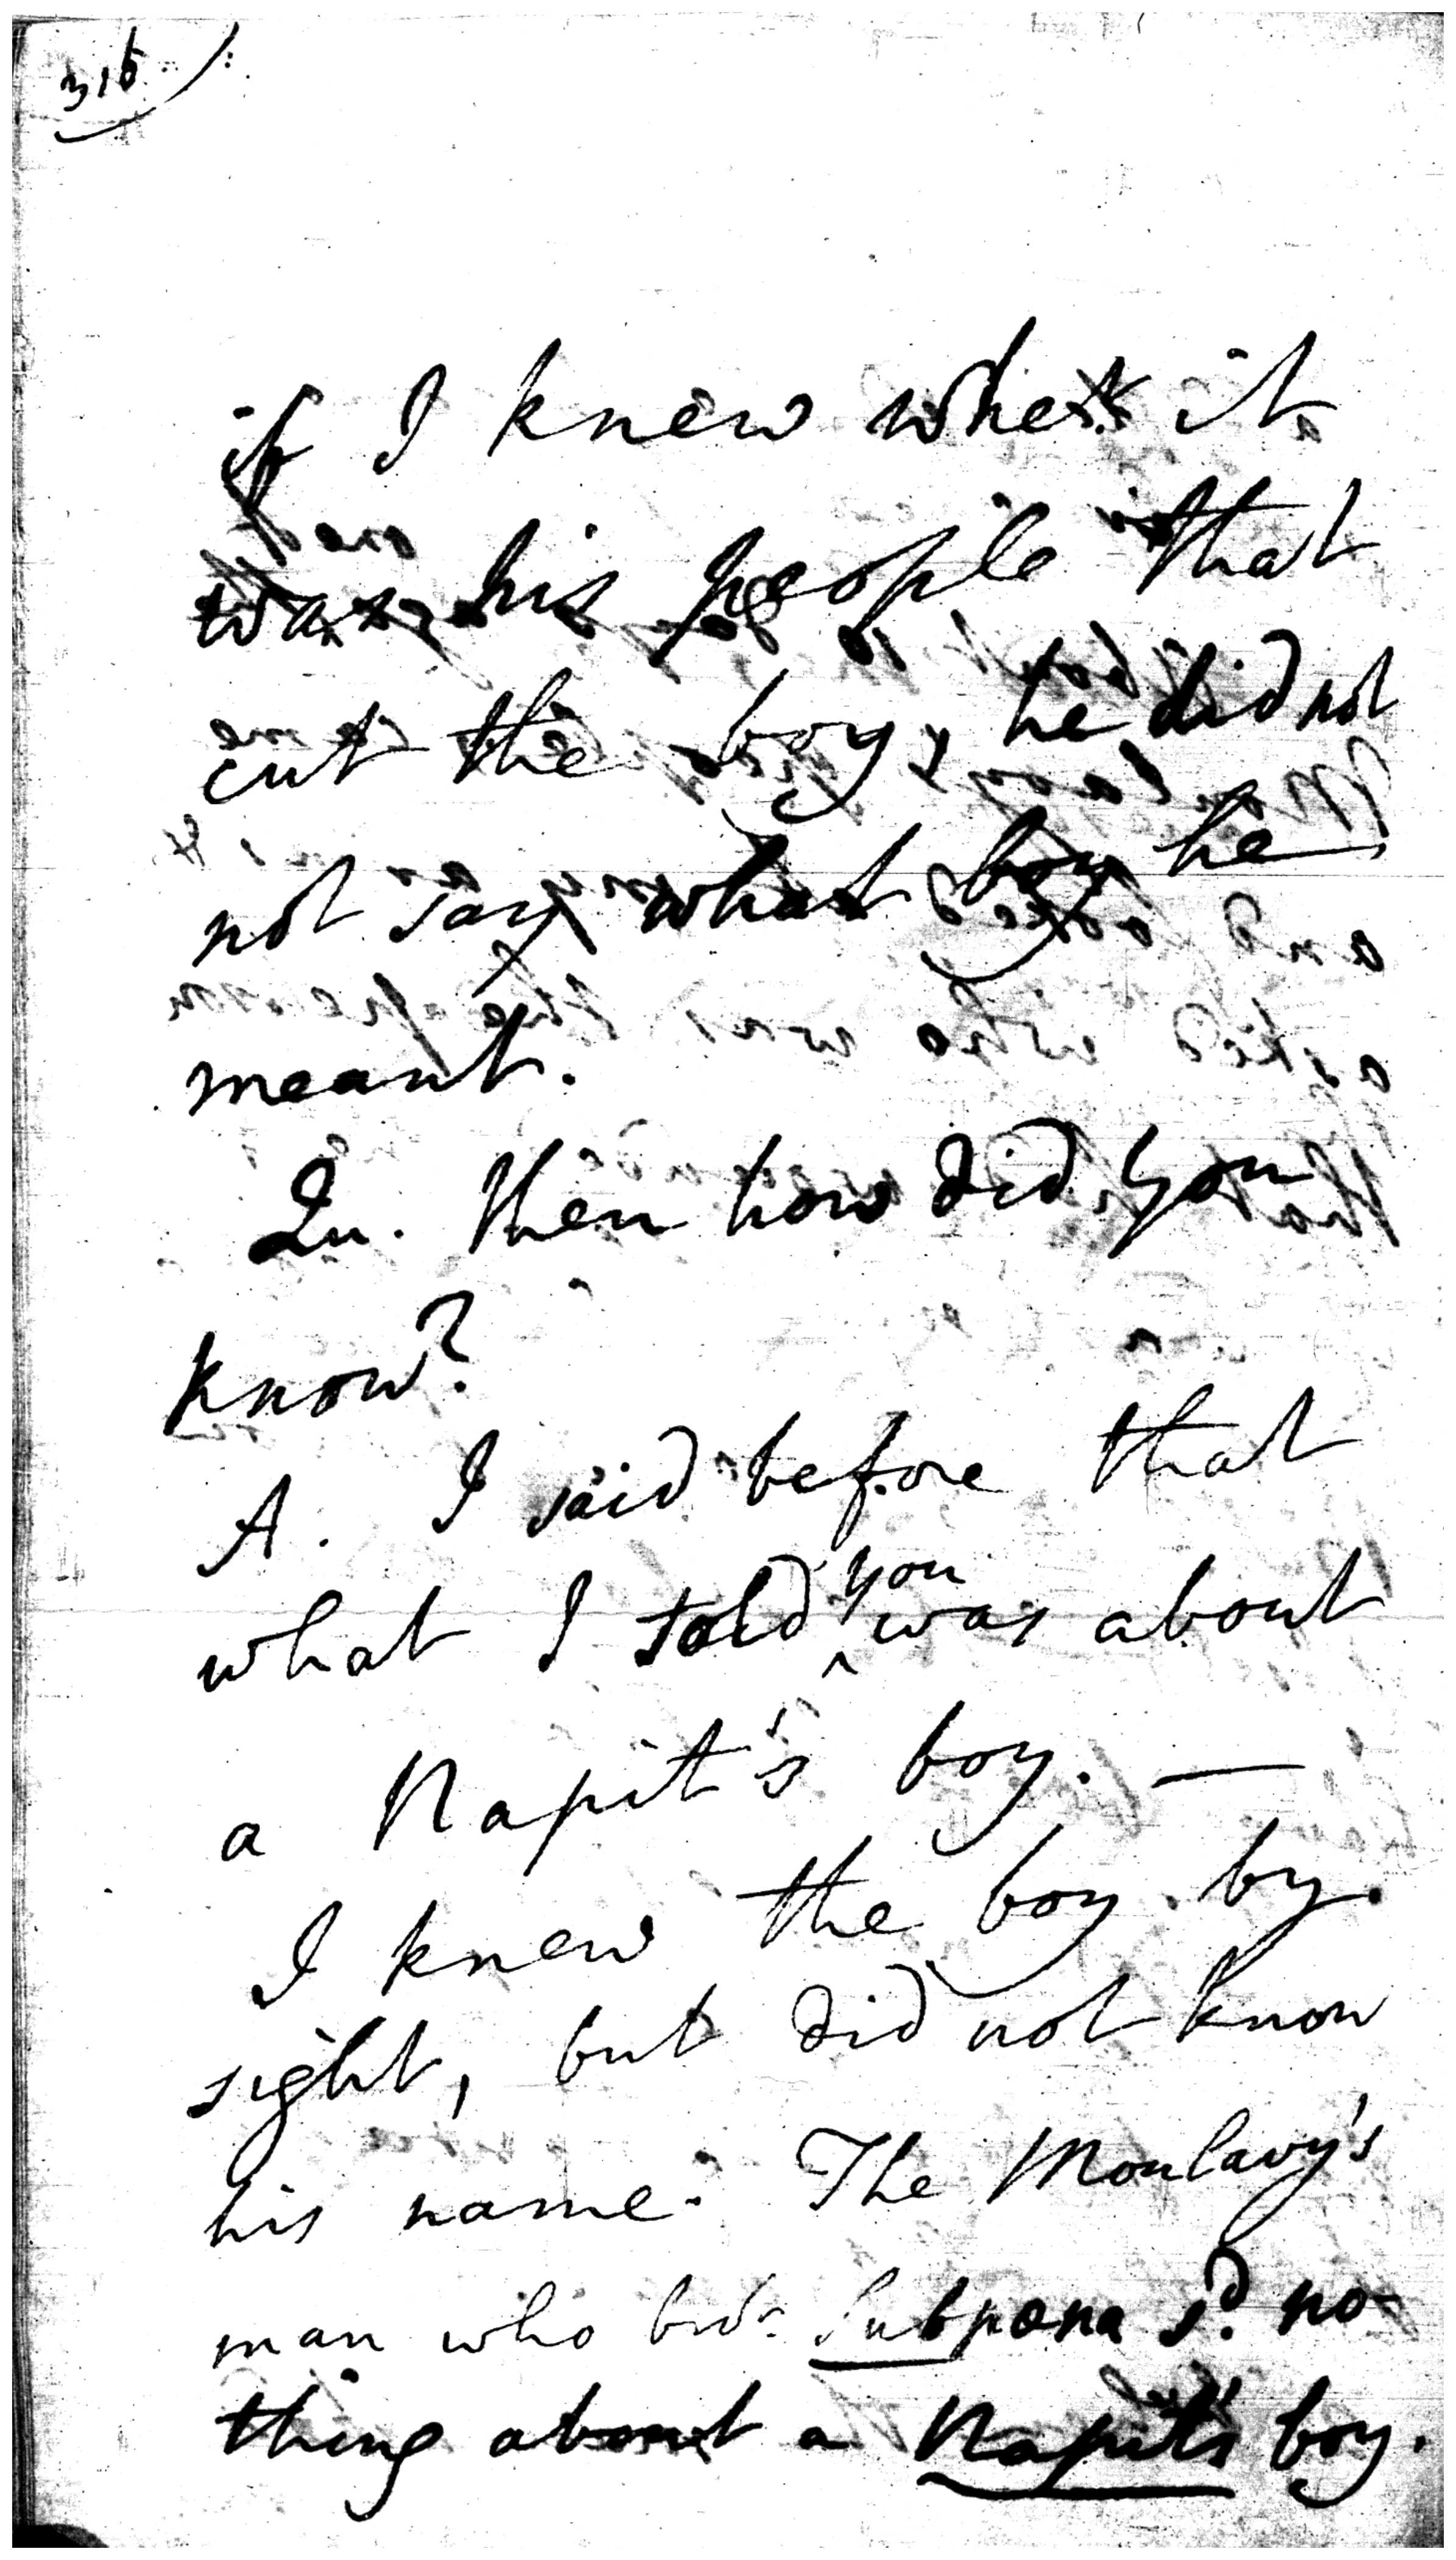 316
if I knew whe it
was his people that
cut the boy, he did not
not say what boy he
meant.
Qu. Then how did you
know?
A. I said before that
what I told you was about
a Napit's boy. —
I knew the boy by
sight, but did not know
his name. The Moulavy's
man who Subpœna s^d. no-
thing about a Napit's boy.